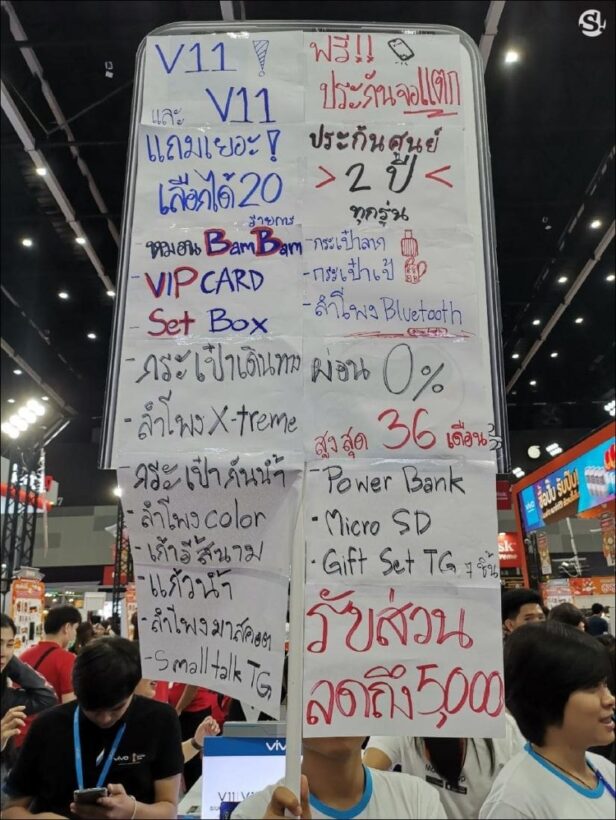 V11
และ V11
แถมเยอะ!
เลือกได้ 20
รายการ
หมอน BamBam
- VIP CARD
- Set Box
- กระเป๋าเดินทาง
- ลำโพง X-treme
- กระเป๋ากันน้ำ
- ลำโพง color
- เก้าอี้สนาม
- แก้วน้ำ
- ลำโพงมาสคอต
- Small talk TG
ฟรี!!
ประกันจอแตก
ประกันศูนย์
> 2 ปี <
ทุกรุ่น
- กระเป๋าลาก
- กระเป๋าเป้
- ลำโพง Bluetooth
ผ่อน 0%
สูงสุด 36 เดือน
- Power Bank
- Micro SD
- Gift Set TG 7 ชิ้น
รับส่วน
ลดถึง 5,000
vivo
vivo
V11
S